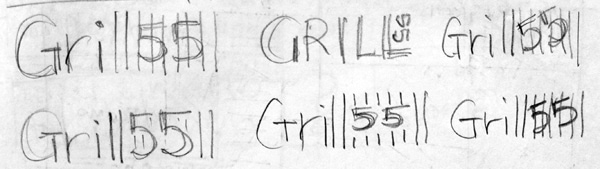 Grill 55 GRILL 55 Grill 55
Grill 55 Grill 55 Grill 55